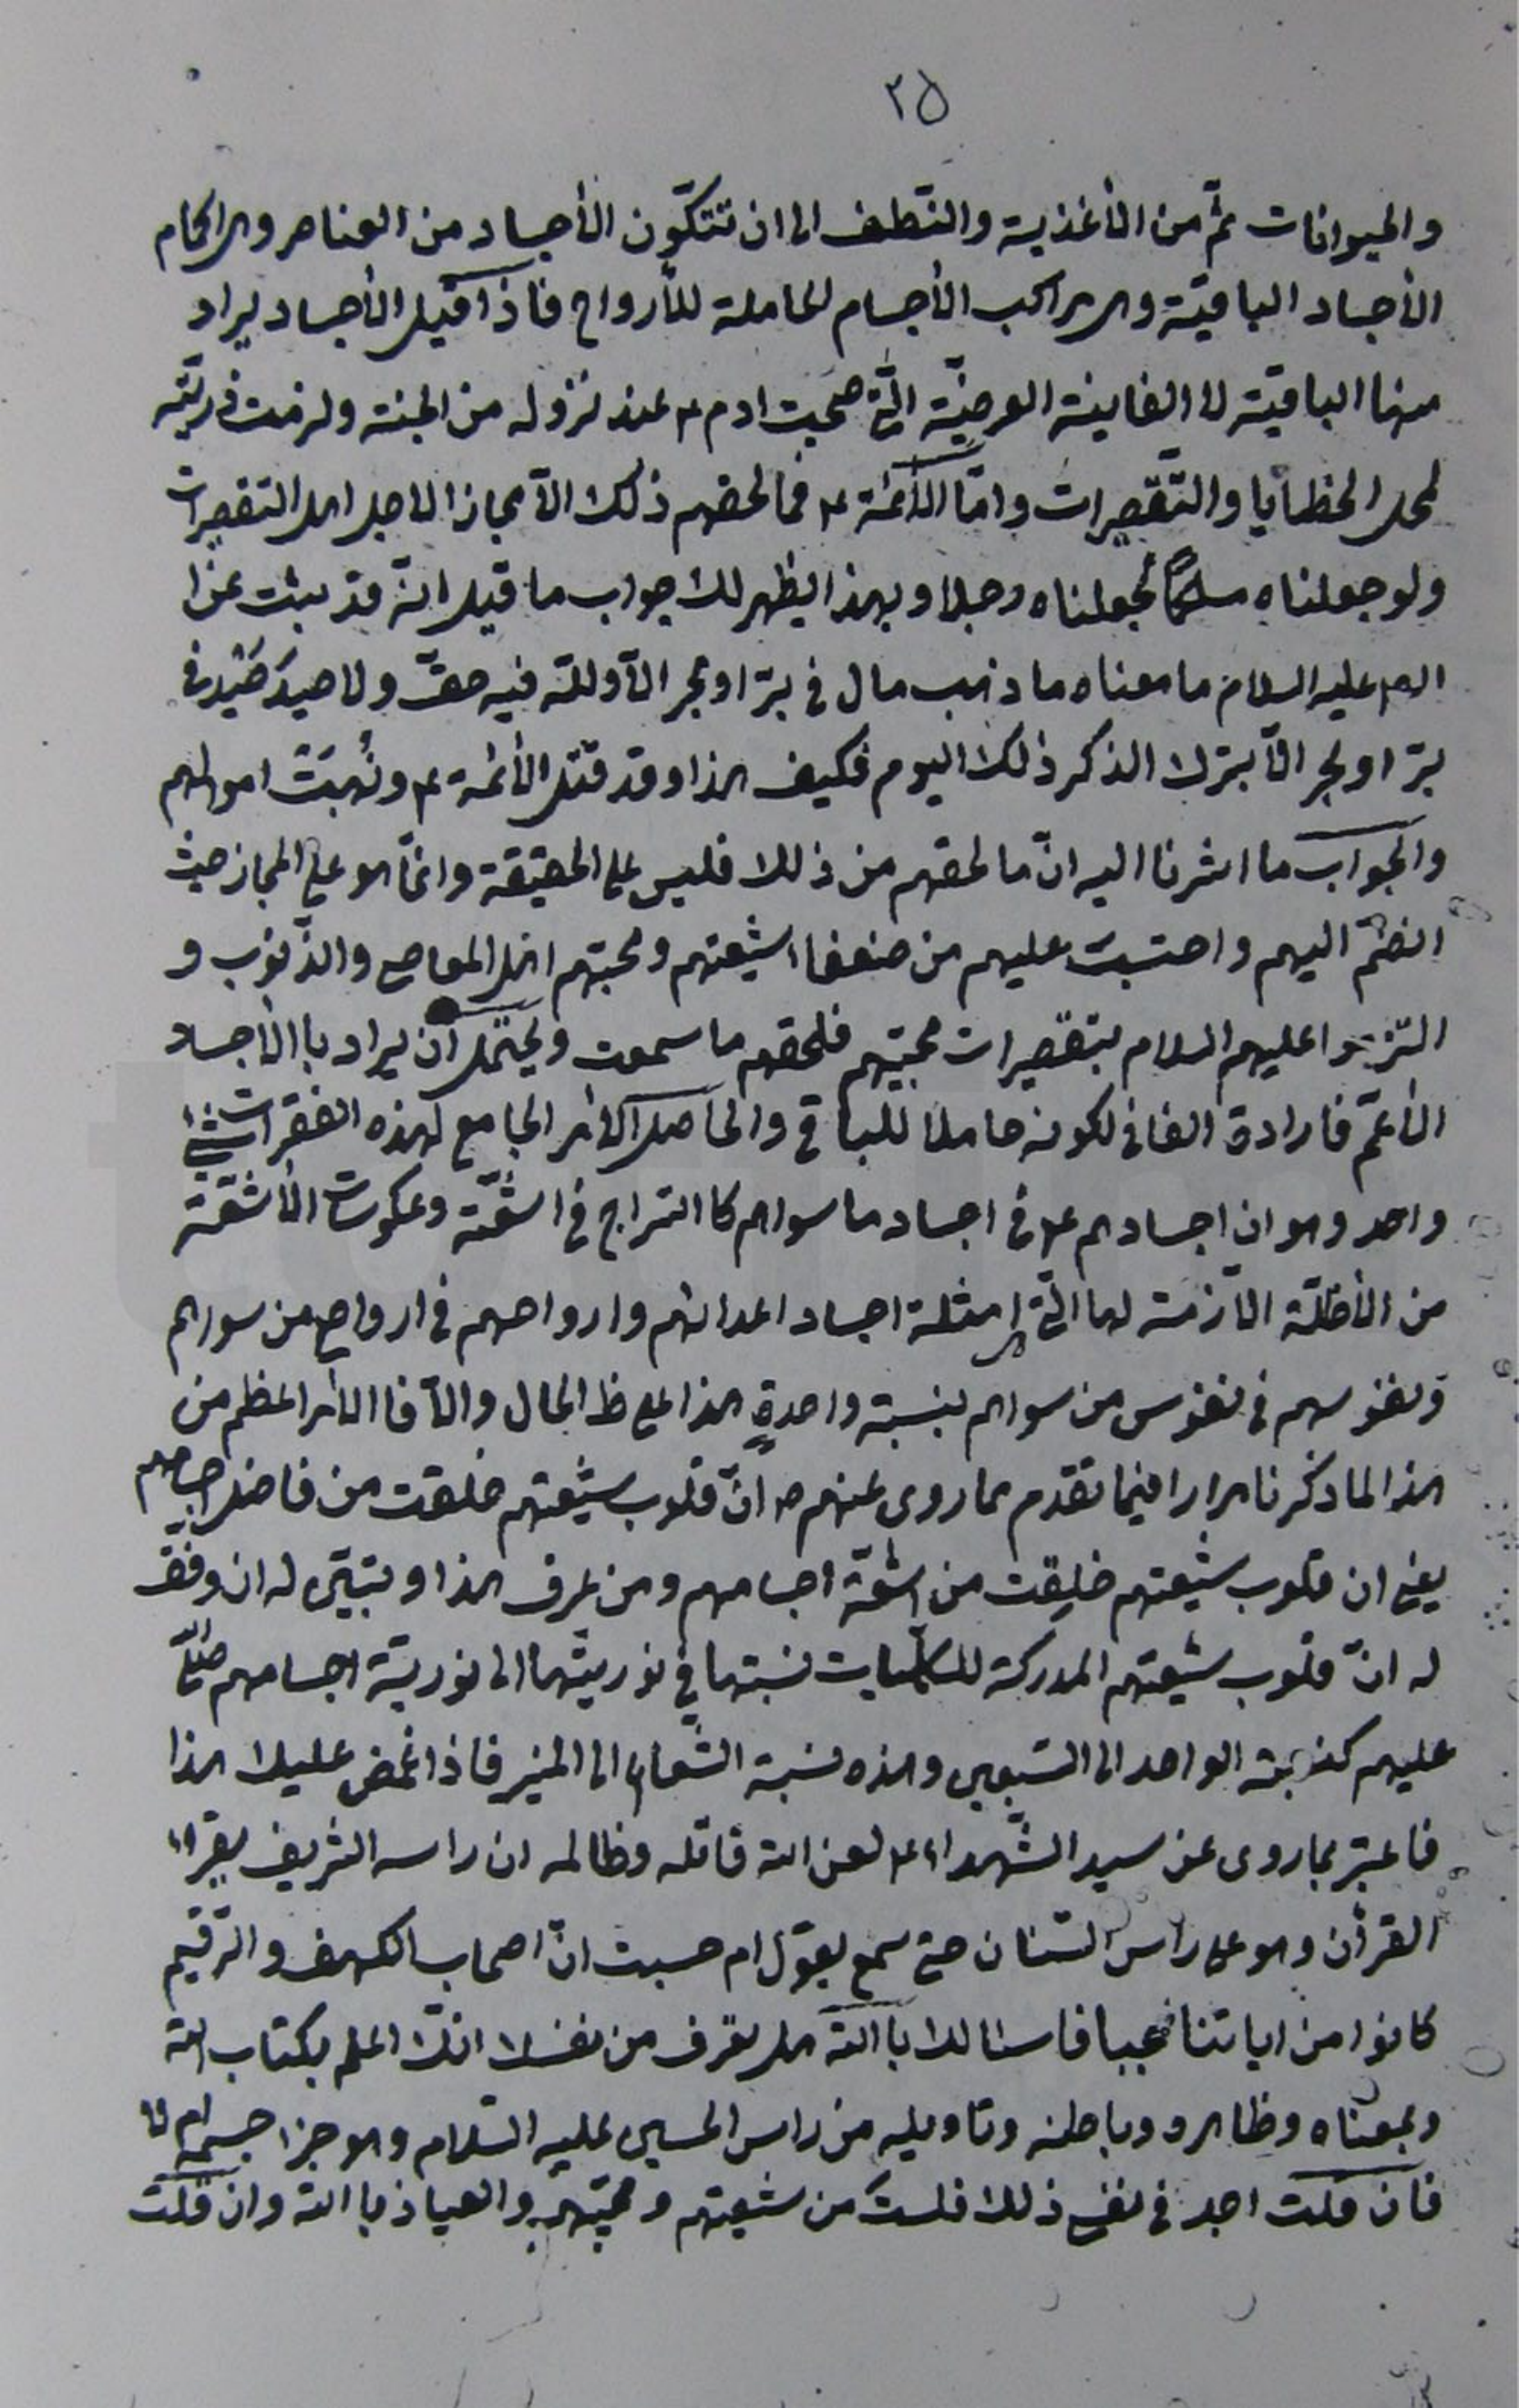 ٢٥
والحيوانات ثمّ من الأغذية والنّطف الى ان تتكوّن الأجساد من العناصر وهى احكام
الأجساد الباقيّة وهى مراكب الأجسام الحاملة للأرواح فاذا قيل الأجساد يراد
منها الباقيّة لا الفانية العرضيّة الّتى صحبت ادم ع عند نزوله من الجنّة ولزمت ذريّته
لمحل الخطايا والتّقصيرات وامّا الأئمّة ع فما لحقهم ذلك الّا مجازا لاجل اهل التقصيرات
ولو جعلناه ملكاً لجعلناه رجلا وبهذا يظهر لك جواب ما قيل انّه قد ثبت عن
عليه السلام ما معناه ما ذهب مال فى برّ او بحر الّا وللّه فيه حقّ ولا صيد صَيْد فى
برّ او بحر الّا بترك الذكر ذلك اليوم فكيف هذا وقد قتل الأئمة ع ونُهبَتْ اموالهم
والجواب ما اشرنا اليه انّ ما لحقهم من ذلك فليس على الحقيقة وانمّا هو على المجاز حيث
انضمّ اليهم واحتسبت عليهم من ضعفاء شيعتهم ومحبّتهم اهل المعاصى والذّنوب و
التزموا عليهم السلام بتقصيرات محبّيهم فلحقهم ما سمعت ويحتمل ان يراد با الأجساد
الأعمّ فارادة الفانى لكونه حاملا للباقى والحاصل الأمر الجامع لهذه الفقرات شئ
واحد وهو ان اجسادهم ع فى اجساد ما سواهم كا السّراج فى اشعّة وعكوسات الأشعّة
من الأظلّة اللّازمة لها الّتى هى امثلة اجساد اعدائهم وارواحهم فى ارواح من سواهم
ونفوسهم فى نفوس من سواهم بنسبة واحدةٍ هذا على ظ الحال والّا فا الأمر اعظم من
هذا لما ذكرنا مرارا فيما تقدم مما روى عنهم ص انّ قلوب شيعتهم خلقت من فاضل اجسامهم
يعنى ان قلوب شيعتهم خلِقت من اشعّة اجسامهم ومن يعرف هذا ويتبيّن له ان وفّق
له انّ قلوب شيعتهم المدركة للكلّيات نسبتها فى نوريّتها الى نوريّة اجسامهم صلّى
عليهم كنسبة الواحد الى السّبعين وهذه نسبة الشّعاع الى المنير فاذا غمض عليك هذا
فاعتبر بما روى عن سيد الشّهداء ع لعن اللّه قاتله وظالمه ان راسه الشريف يقراء
القرأن وهو على راس السّنان حتى سمع يقول ام حسبت انّ اصحاب الكهف والرّقيم
كانوا من اياتنا عجبا فاسئالك با اللّه هل تعرف من نفسك انّك اعلم بكتاب اللّه
وبمعناه وظاهره وباطنه وتاويله من راس الحسين عليه السّلام وهو جزء جسمه ام لا
فان قلت اجد فى نفسى ذلك فلست من شيعتهم ومحبّيهم والعياذ با اللّه وان قلت